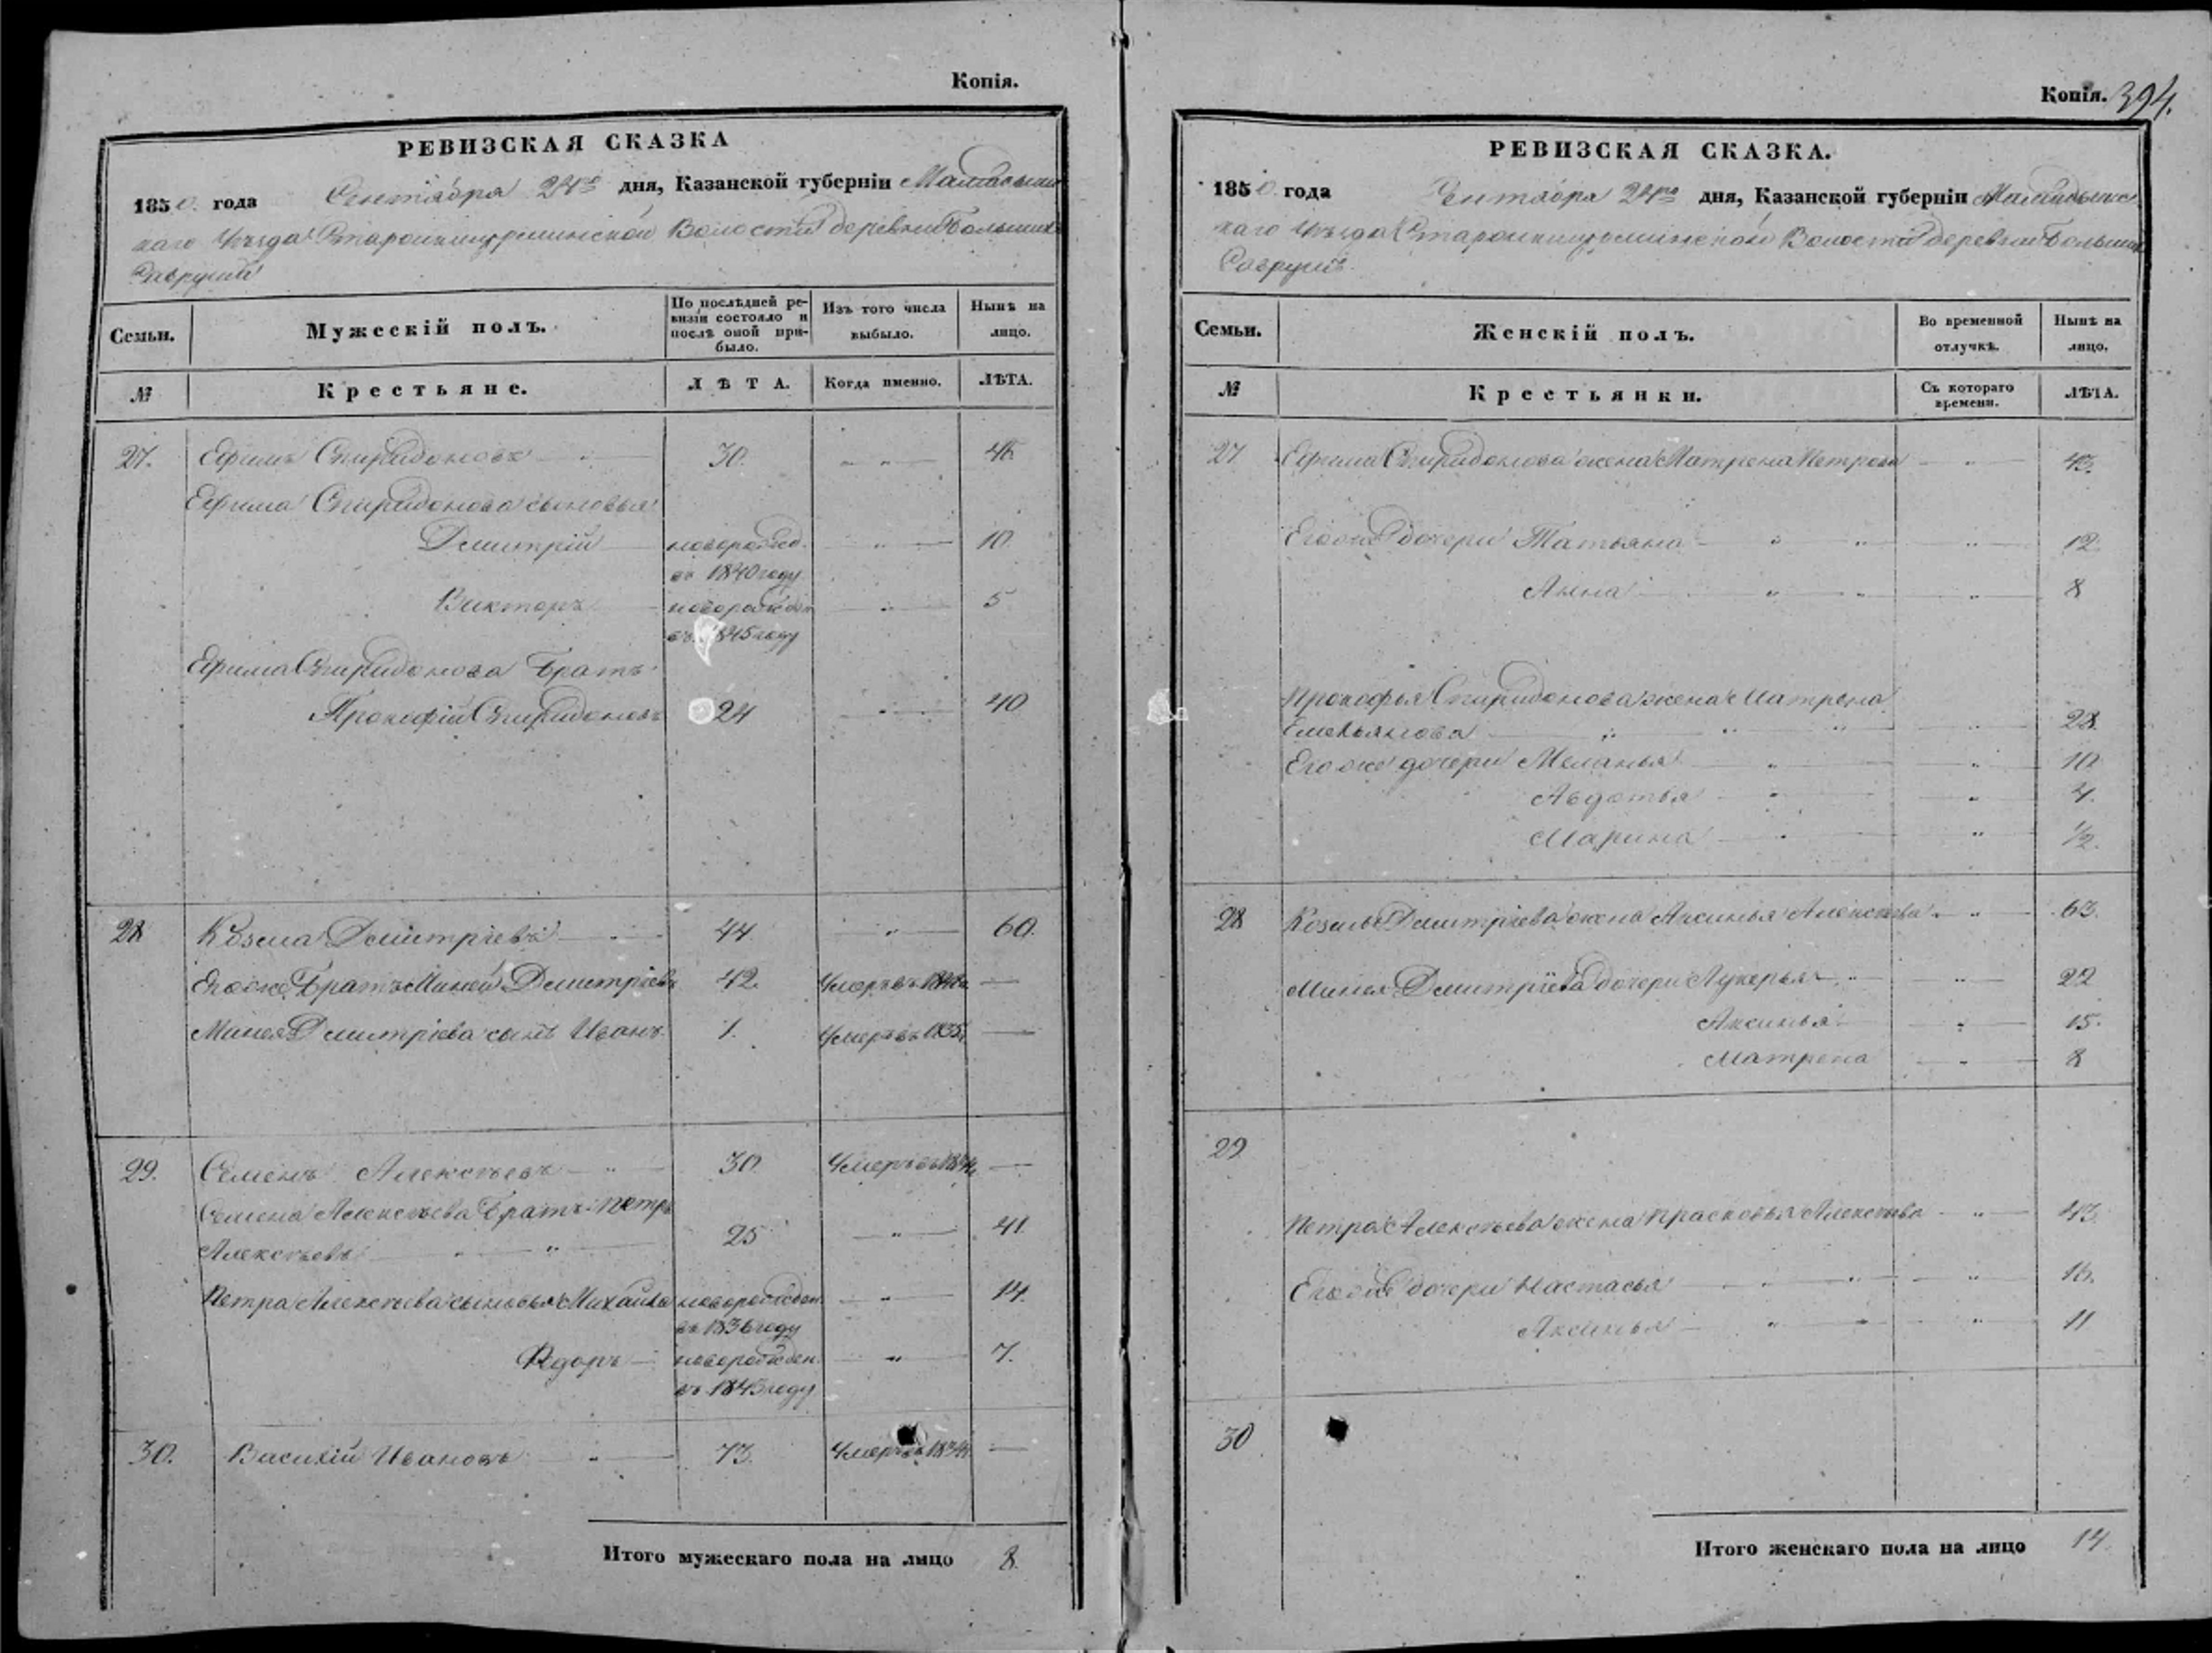 Копія.
РЕВИЗСКАЯ СКАЗКА
1850 года Сентября 24го дня, Казанской губерніи Мамадышс
каго Уѣзда Волости деревни Большихъ
Савруши
Семьи. Мужескій полъ. По послѣдней ре-визіи состояло и послѣ оной при-было. Изъ того числа выбыло. Нынѣ на лицо.
№ Крестьяне. ЛѢТА. Когда именно. ЛѢТА.
27. Ефимъ Спиридоновъ 30. 46
Ефима Спиридонова сыновья
Дмитрій новорожд. въ 1840 году 10.
Викторъ новорожден въ 1845 году 5
Ефима Спиридонова Братъ
Прокофій Спиридоновъ 24 40
28 Козма Дмитріевъ 44 60.
Егоже Братъ Миней Дмитріевъ 42. Умеръ въ —
Минея Дмитріева сынъ Иванъ 1. Умеръ въ 1835 —
29. Семенъ Алексѣевъ 30. Умеръ въ —
Семена Алексѣева Братъ Петръ
Алексѣевъ 25 41.
Петра Алексѣева сыновья Михайла новорожден. въ 1836 году 14.
Ѳедоръ новорожден. въ 1843 году 7.
30. Василій Ивановъ 73. Умеръ въ —
Итого мужескаго пола на лицо 8.
Копія. 394.
РЕВИЗСКАЯ СКАЗКА.
1850 года Сентября 24го дня, Казанской губерніи Мамадышс
каго Уѣзда Волости деревни Большихъ
Савруши
Семьи. Женскій полъ. Во временной отлучкѣ. Нынѣ на лицо.
№ Крестьянки. Съ котораго времени. ЛѢТА.
27 Ефима Спиридонова жена Матрена Петрова 43.
Егоже дочери Татьяна 12.
Анна 8
Прокофья Спиридонова жена Матрена
Емельянова 28.
Егоже дочери Меланья 10
Авдотья 4.
Марина 1/2.
28 Козмы Дмитріева жена Аксинья Алексѣева 63.
Минея Дмитріева дочери Лукерья 22
Аксинья 15.
Матрена 8
29
Петра Алексѣева жена Прасковья Алексѣева 43.
Егоже дочери Настасья 16.
Аксинья 11
30
Итого женскаго пола на лицо 14.